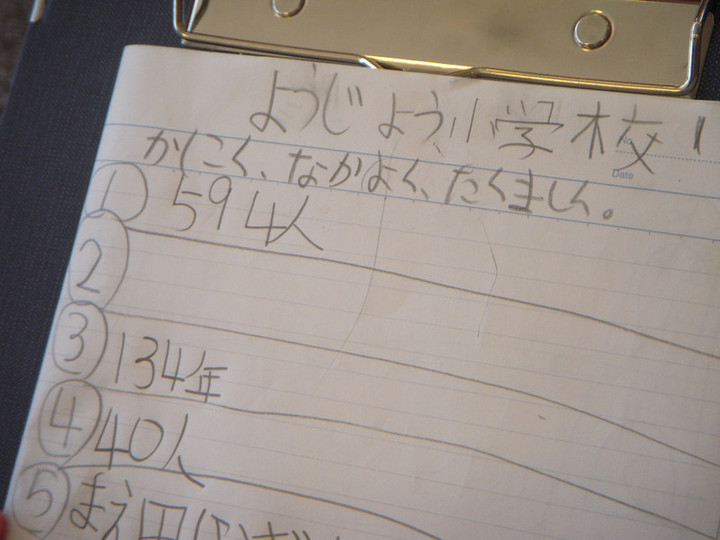 ようじょう小学校
かしこく、なかよく、たくましく。
① 594人
②
③ 134年
④ 40人
⑤ まえ田
Date